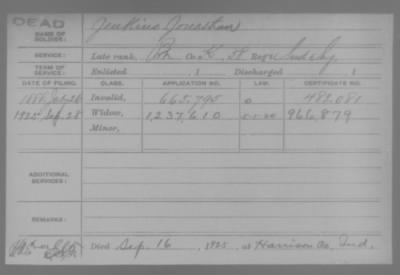 DEAD
NAME OF SOLDIER: Jenkins Jonathan
SERVICE: Late rank, Co. 58 Reg't Ind.
TERM OF SERVICE: Enlisted , 1 Discharged , 1
DATE OF FILING. CLASS. APPLICATION NO. LAW. CERTIFICATE NO.
1888 Invalid, 665,795 482,081
1925 Sep. 28 Widow, 1,237,610 966,879
Minor,
ADDITIONAL SERVICES:
REMARKS:
Died Sep. 16, 1925, at Harrison Co, Ind.